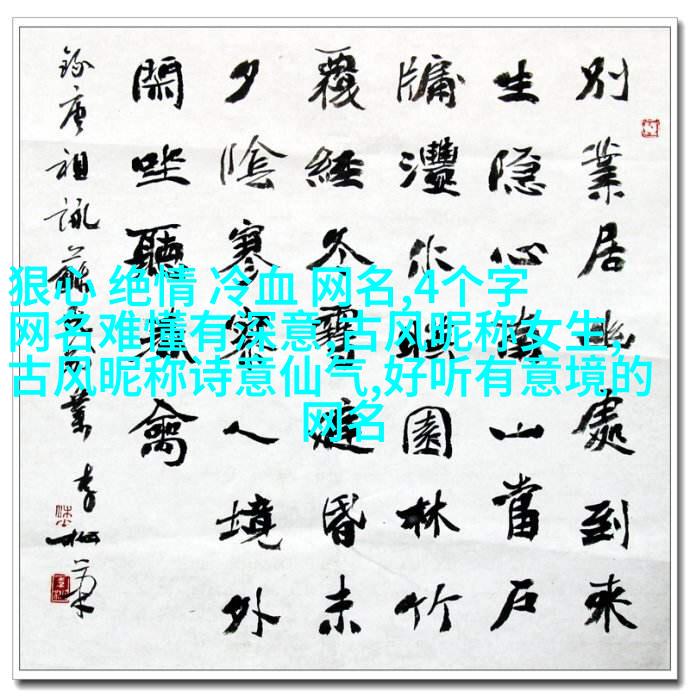 狠心 绝情 冷血 网名,4个字
网名难懂有深意,古风昵称女生,
古风昵称诗意仙气,好听有意境的
网名
别業居幽處到来
生隐心南山當户
牖灃水映園林竹
覆経冬雪庭昏未
夕陰寥寥人境外
閑坐聽春禽
錄唐祖詠蘇氏別業